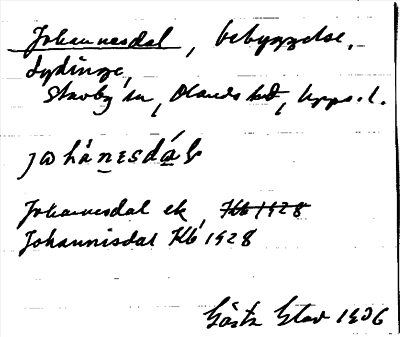 Johannesdal, bebyggelse,
Lydinge,
Stavby sn, Olands hd, Upps. l.
johánesdál
Johannesdal ek, Kb 1928
Johannisdal Kb 1928
Gösta 1936